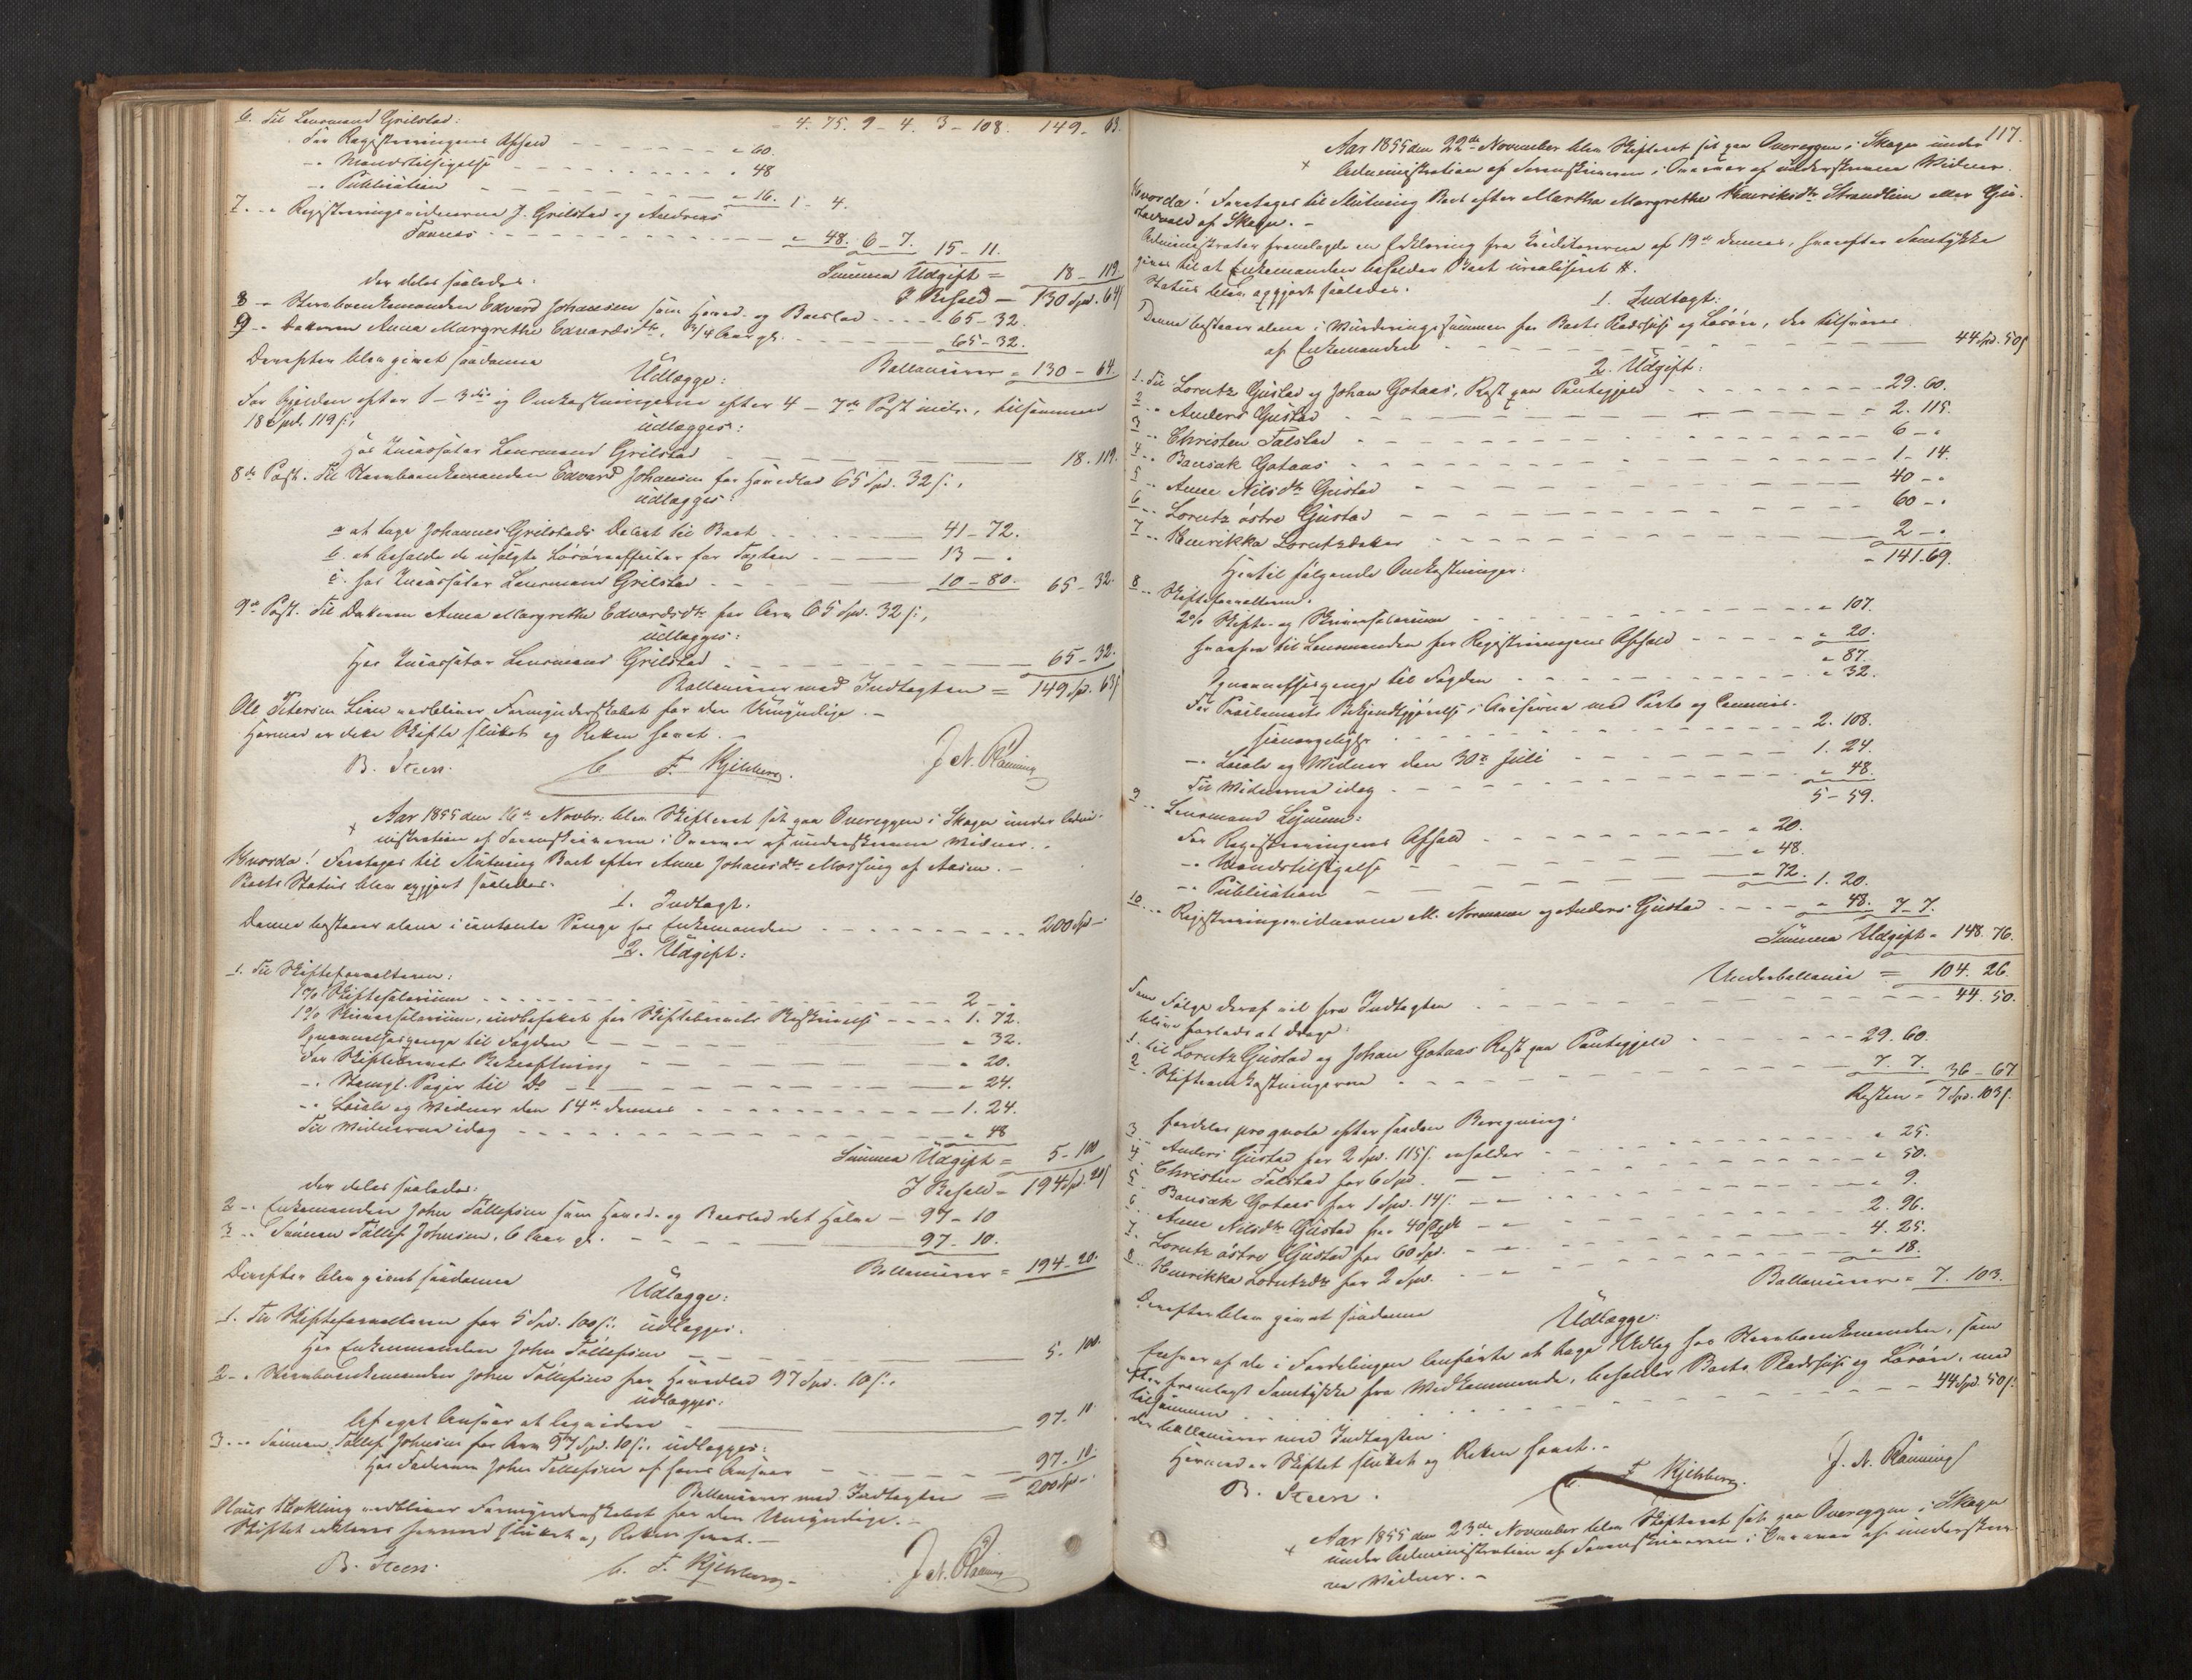 6. Til Lensmand Grilstad: 4. 75. 9 – 4. 3 – 108. 149 – 63.
For Registreringens Afhold – " 60.
-" Mandstilsigelse – " 48
-" Publication – " 16. 1 – 4.
7. -" Registreringsvidnerne J. Grilstad og Andreas
– " 48. 6 – 7. 15 – 11.
Summa Udgift = 18 – 119
der deles saaledes: I Behold – 130 Spd. 64 ß
8 -" Stervboenkemanden Edvard Johansen som Hoved- og Boeslod – 65 – 32.
9 -" Datteren Anna Margrethe Edvardsdtr, 3/4 Aar gl. – 65 – 32.
Ballancerer = 130 – 64.
Derefter blev givet saadanne
Udlægge:
For Gjælden efter 1 – 3die og Omkostningerne efter 4 – 7de Post incl., tilsammen
18 Spd. 119 ß.,
udlægges:
Hos Incassator Lensmand Grilstad – 18. 119.
8de Post. Til Stervboenkemanden Edvard Johansen for Hovedlod 65 Spd. 32 ß.,
udlægges:
a at tage Johannes Grilstads Debet til Boet – 41 – 72.
b. at beholde de usolgte Løsøreeffecter for Taxten – 13 – "
c. hos Incassator Lensmand Grilstad – 10 – 80. 65 – 32.
9de Post. Til Datteren Anna Margrethe Edvardsdtr for Arv 65 Spd. 32 ß.,
udlægges:
Hos Incassator Lensmand Grilstad – 65 – 32.
Ballancerer med Indtægten = 149 Spd. 63 ß
Ole Petersen Lian vedbliver Formynderskabet for den Umyndige. –
Hermed er dette Skifte sluttet og Retten hævet. –
B. Steen. C. F. Kjelsberg. J. N. Rønning
Aar 1855 den 16de Novbr. blev Skifteret sat paa Overeggen i Skogn under Admi-
nistration af Sorenskriveren i Overvær af underskrevne Vidner. –
Hvorda! Foretoges til Slutning Boet efter Anne Johansdtr Mossing af Aasen. –
Boets Status blev opgjort saaledes.
1. Indtægt.
Denne bestaaer alene i contante Penge hos Enkemanden – 200 Spd –
2. Udgift:
1. Til Skifteforvalteren:
1% Skiftesalarium – 2 – "
1% Skriversalarium, indbefattet for Skiftebrevets Beskrivelse – 1. 72.
til Fogden – " 32.
For Skiftebrevets Bekræftning – " 20.
-" Stempl. Papir til Do – " 24.
-" Locale og Vidner den 14de dennes – 1. 24.
Til Vidnerne idag – " 48
Summa Udgift = 5 – 100
der deles saaledes: I Behold = 194 Spd. 20 ß
2 -" Enkemanden John Tollefsen som Hoved- og Boeslod det Halve – 97 – 10
3 -" Sønnen Tollef Johnsen, 6 Aar gl. – 97 – 10.
Ballancerer = 194 – 20.
Derefter blev givet saadanne
Udlægge:
1. Til Skifteforvalteren for 5 Spd. 100 ß., udlægges.
Hos Enkemanden John Tollefsen – 5. 100.
2 -" Stervboenkemanden John Tollefsen for Hovedlod 97 Spd. 10 ß.,
udlægges:
Af eget Ansvar at liqvidere – 97. 10.
3 -" Sønnen Tollef Johnsen for Arv 97 Spd. 10 ß., udlægges:
Hos Faderen John Tollefsen af hans Ansvar – 97 – 10.
Ballancerer med Indtægten = 200 Spd –
vedbliver Formynderskabet for den Umyndige. –
Skiftet erklæres hermed sluttet og Retten hævet. –
B. Steen. C. F. Kjelsberg – J. N. Rønning
117.
Aar 1855 den 22de November blev Skifteret sat paa Overeggen i Skogn under
Administration af Sorenskriveren i Overvær af underskrevne Vidner.
Hvorda! Foretoges til Slutning Boet efter Martha Margrethe Henriksdtr Strandlien eller Gu-
stadvald af Skogn. –
Administrator fremlagde en Erklæring fra Creditorerne af 19de dennes, hvorefter Samtykke
gives til at Enkemanden beholder Boet urealiseret #.
Status blev opgjort saaledes.
1. Indtægt:
Denne bestaaer alene i Vurderingssummen for Boets Pladshuse og Løsøre, der tilsvares
af Enkemanden – 44 Spd. 50 ß
2. Udgift:
1. Til Lorentz Gustad og Johan Gotaas, Rest paa Pantegjeld – 29. 60.
2 -" Anders Gustad – 2. 115.
3 -" Christen Falstad – 6 – "
4 -" Gotaas – 1 – 14.
5 -" Anne Nilsdtr Gustad – 40 – "
6 -" Lorentz østre Gustad – 60 – "
7 -" Henrikka Lorentzdatter – 2 – "
– 141. 69.
Hertil følgende Omkostninger:
8 -" Skifteforvalteren.
2% Skifte- og Skriversalarium – " 107.
hvorfra til Lensmanden for Registreringens Afhold – " 20.
" 87.
til Fogden – " 32.
For Proclamaets Bekjendtgjørelse i Aviserne med Porto og Commis-
sionærgodtgj. – 2. 108.
-" Locale og Vidner den 30te Juli – 1. 24.
Til Vidnerne idag – " 48.
5 – 59.
9 -" Lensmand Lynum:
For Registreringens Afhold – " 20.
-" Mandstilsigelse – " 48.
-" Publication – " 72. 1. 20.
10 -" Registreringsvidnerne M. Normann og Anders Gustad – " 48. 7 – 7.
Summa Udgift = 148. 76.
Underballance = 104. 26.
Som Følge deraf vil fra Indtægten – 44. 50.
blive forlods at drage:
1. til Lorentz Gustad og Johan Gotaas Rest paa Pantegjeld – 29. 60.
2 -" Skifteomkostningerne – 7. 7. 36 – 67
Resten = 7 Spd. 103 ß.
fordeles pro qvota efter saadan Beregning:
3 Anders Gustad for 2 Spd. 115 ß. erholder – " 25.
4 Christen Falstad for 6 Spd. – " 50.
5 Gotaas for 1 Spd. 14 ß. – " 9.
6 Anne Nilsdtr Gustad for 40 Spd. – 2. 96.
7 Lorentz østre Gustad for 60 Spd. – 4. 25.
8 Henrikka Lorentzdtr for 2 Spd. – " 18.
Ballancerer = 7. 103.
Derefter blev givet saadanne
Udlægge:
Enhver af de i Fordelingen anførte at tage Udlæg hos Stervboenkemanden, som
efter fremlagt Samtykke fra Vedkommende, beholder Boets Pladshuse og Løsøre, med
tilsammen – 44 Spd. 50 ß.
der ballancerer med Indtægten.
Hermed er Skiftet sluttet og Retten hævet. –
B. Steen. C. F. Kjelsberg. J. N. Rønning
Aar 1855 den 23de November blev Skifteret sat paa Overeggen i Skogn
under Administration af Sorenskriveren i Overvær af underskrev-
ne Vidner. –